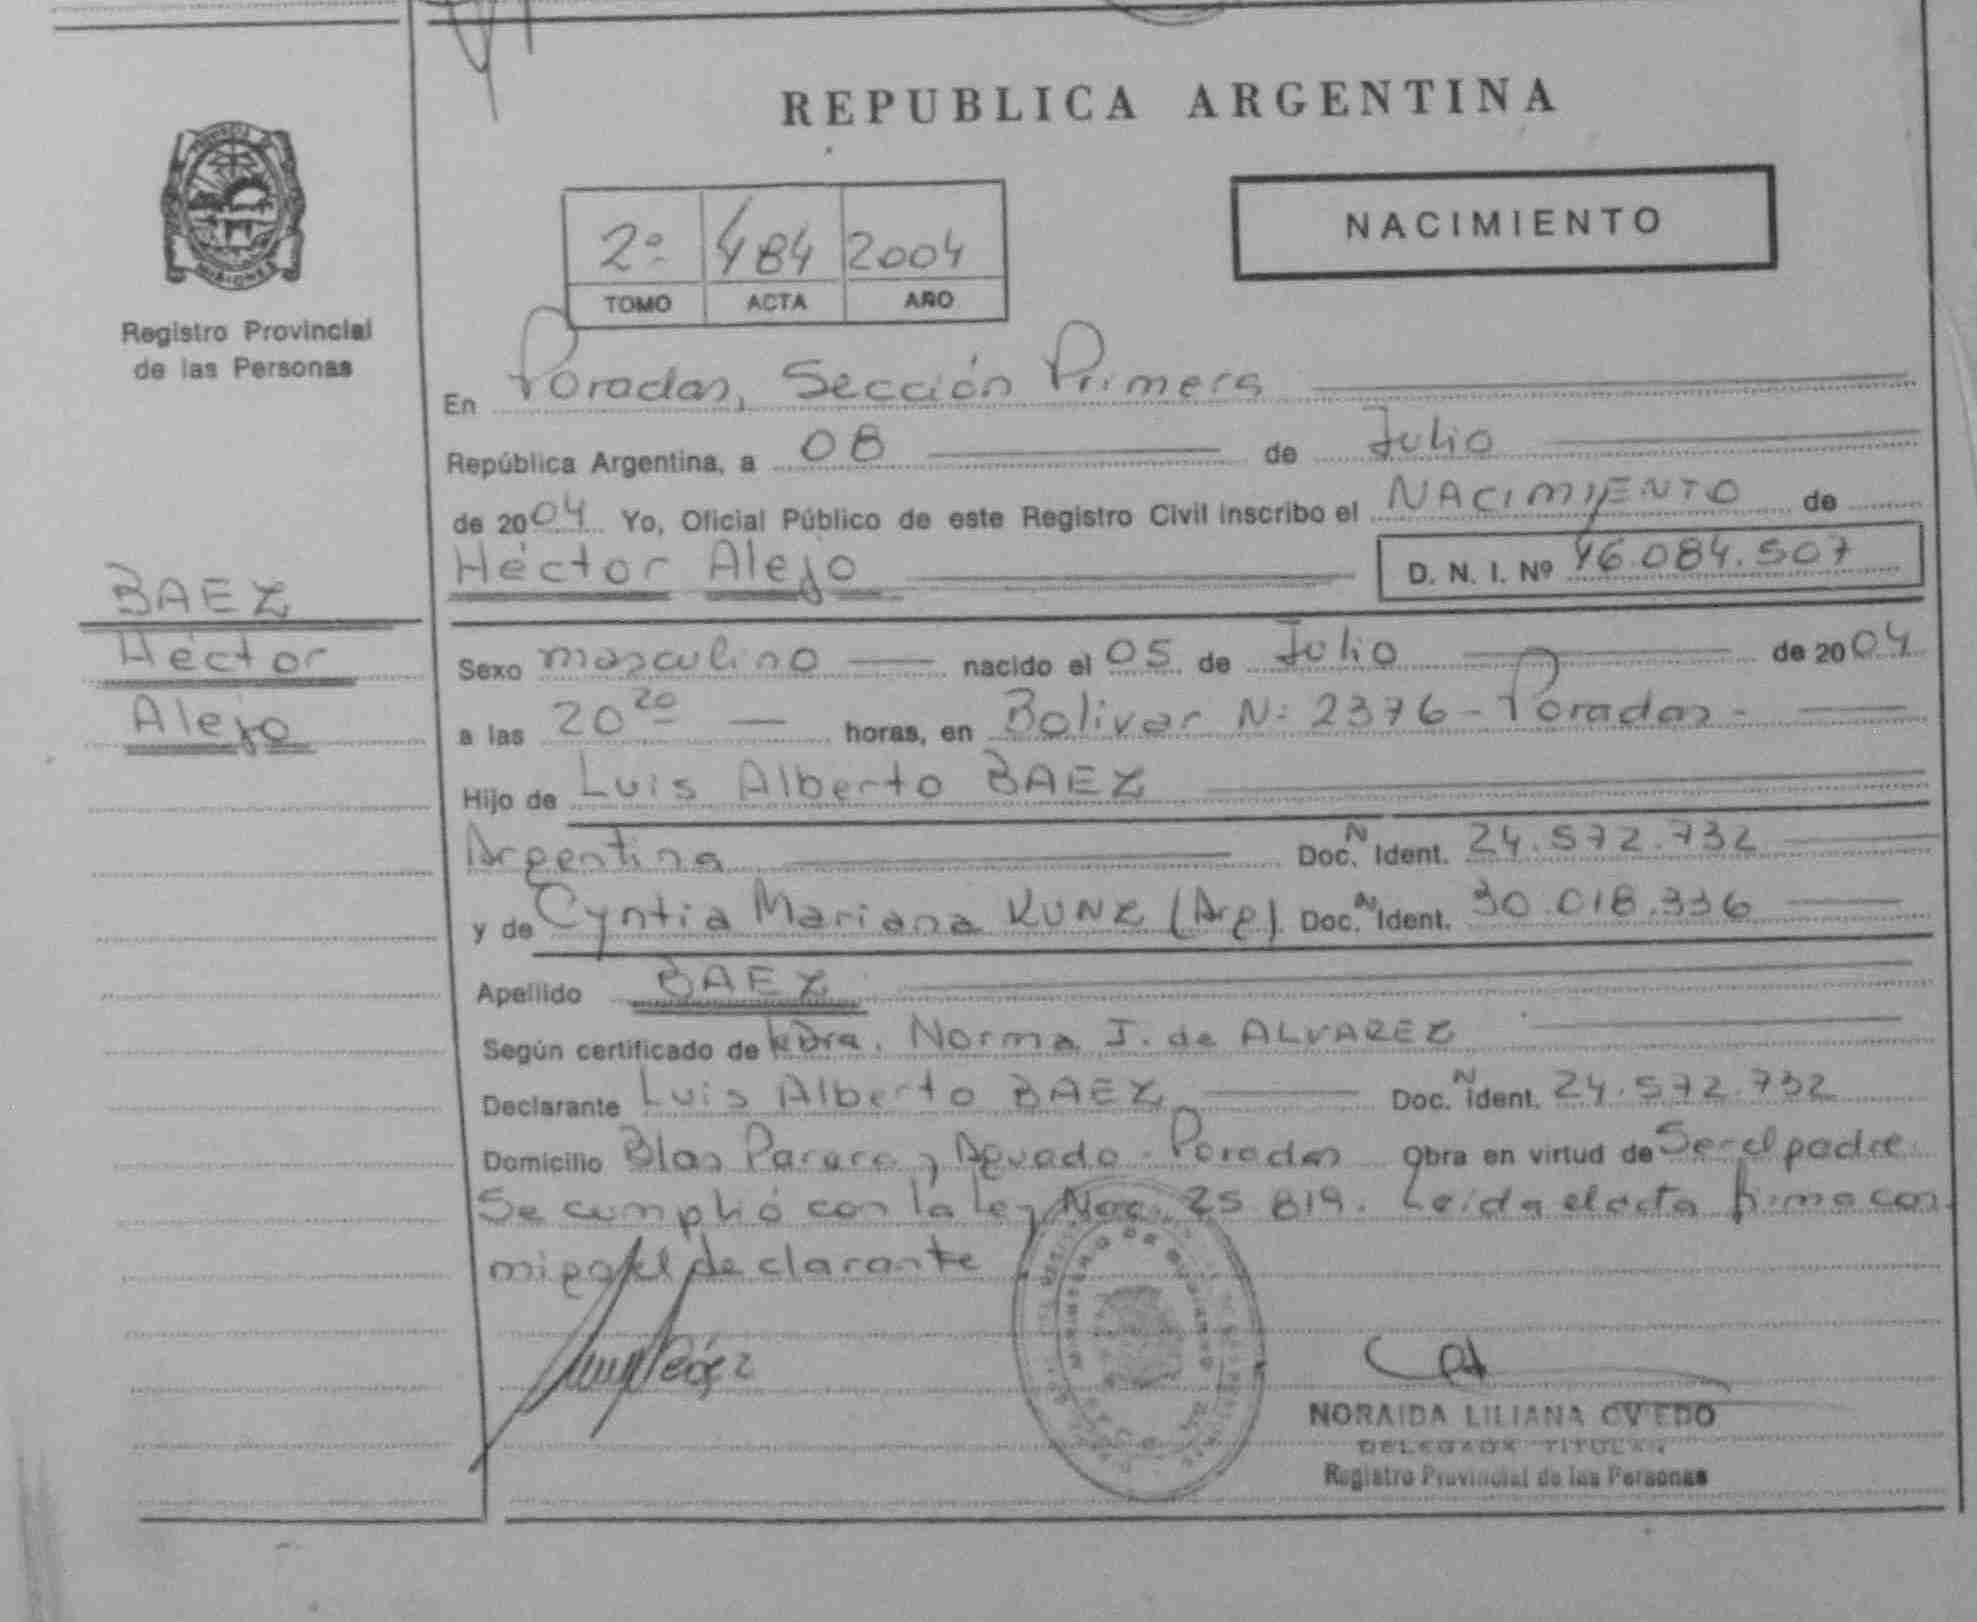 REPUBLICA ARGENTINA
NACIMIENTO
2º 484 2004
TOMO ACTA AÑO
Registro Provincial
de las Personas
En Posadas, Sección Primera
República Argentina, a 08 de Julio
de 2004 Yo, Oficial Público de este Registro Civil inscribo el NACIMIENTO de
Héctor Alejo D. N. I. Nº 46.084.507
BAEZ
Héctor
Alejo
Sexo masculino nacido el 05 de Julio de 2004
a las 20 20 horas, en Bolivar Nº 2376 - Posadas -
Hijo de Luis Alberto BAEZ
Argentina Doc. N Ident. 24.572.732
y de Cyntia Mariana KUNZ (Arg) Doc. N Ident. 30.018.336
Apellido BAEZ
Según certificado de Dra. Norma I. de ALVAREZ
Declarante Luis Alberto BAEZ Doc. N Ident. 24.572.732
Domicilio Blas Parera y Aguado - Posadas Obra en virtud de Ser el padre.
Se cumplió con la ley Nac. 25.819. Leída el acta firma con
migo el declarante
NORAIDA LILIANA OVIEDO
DELEGADA TITULAR
Registro Provincial de las Personas